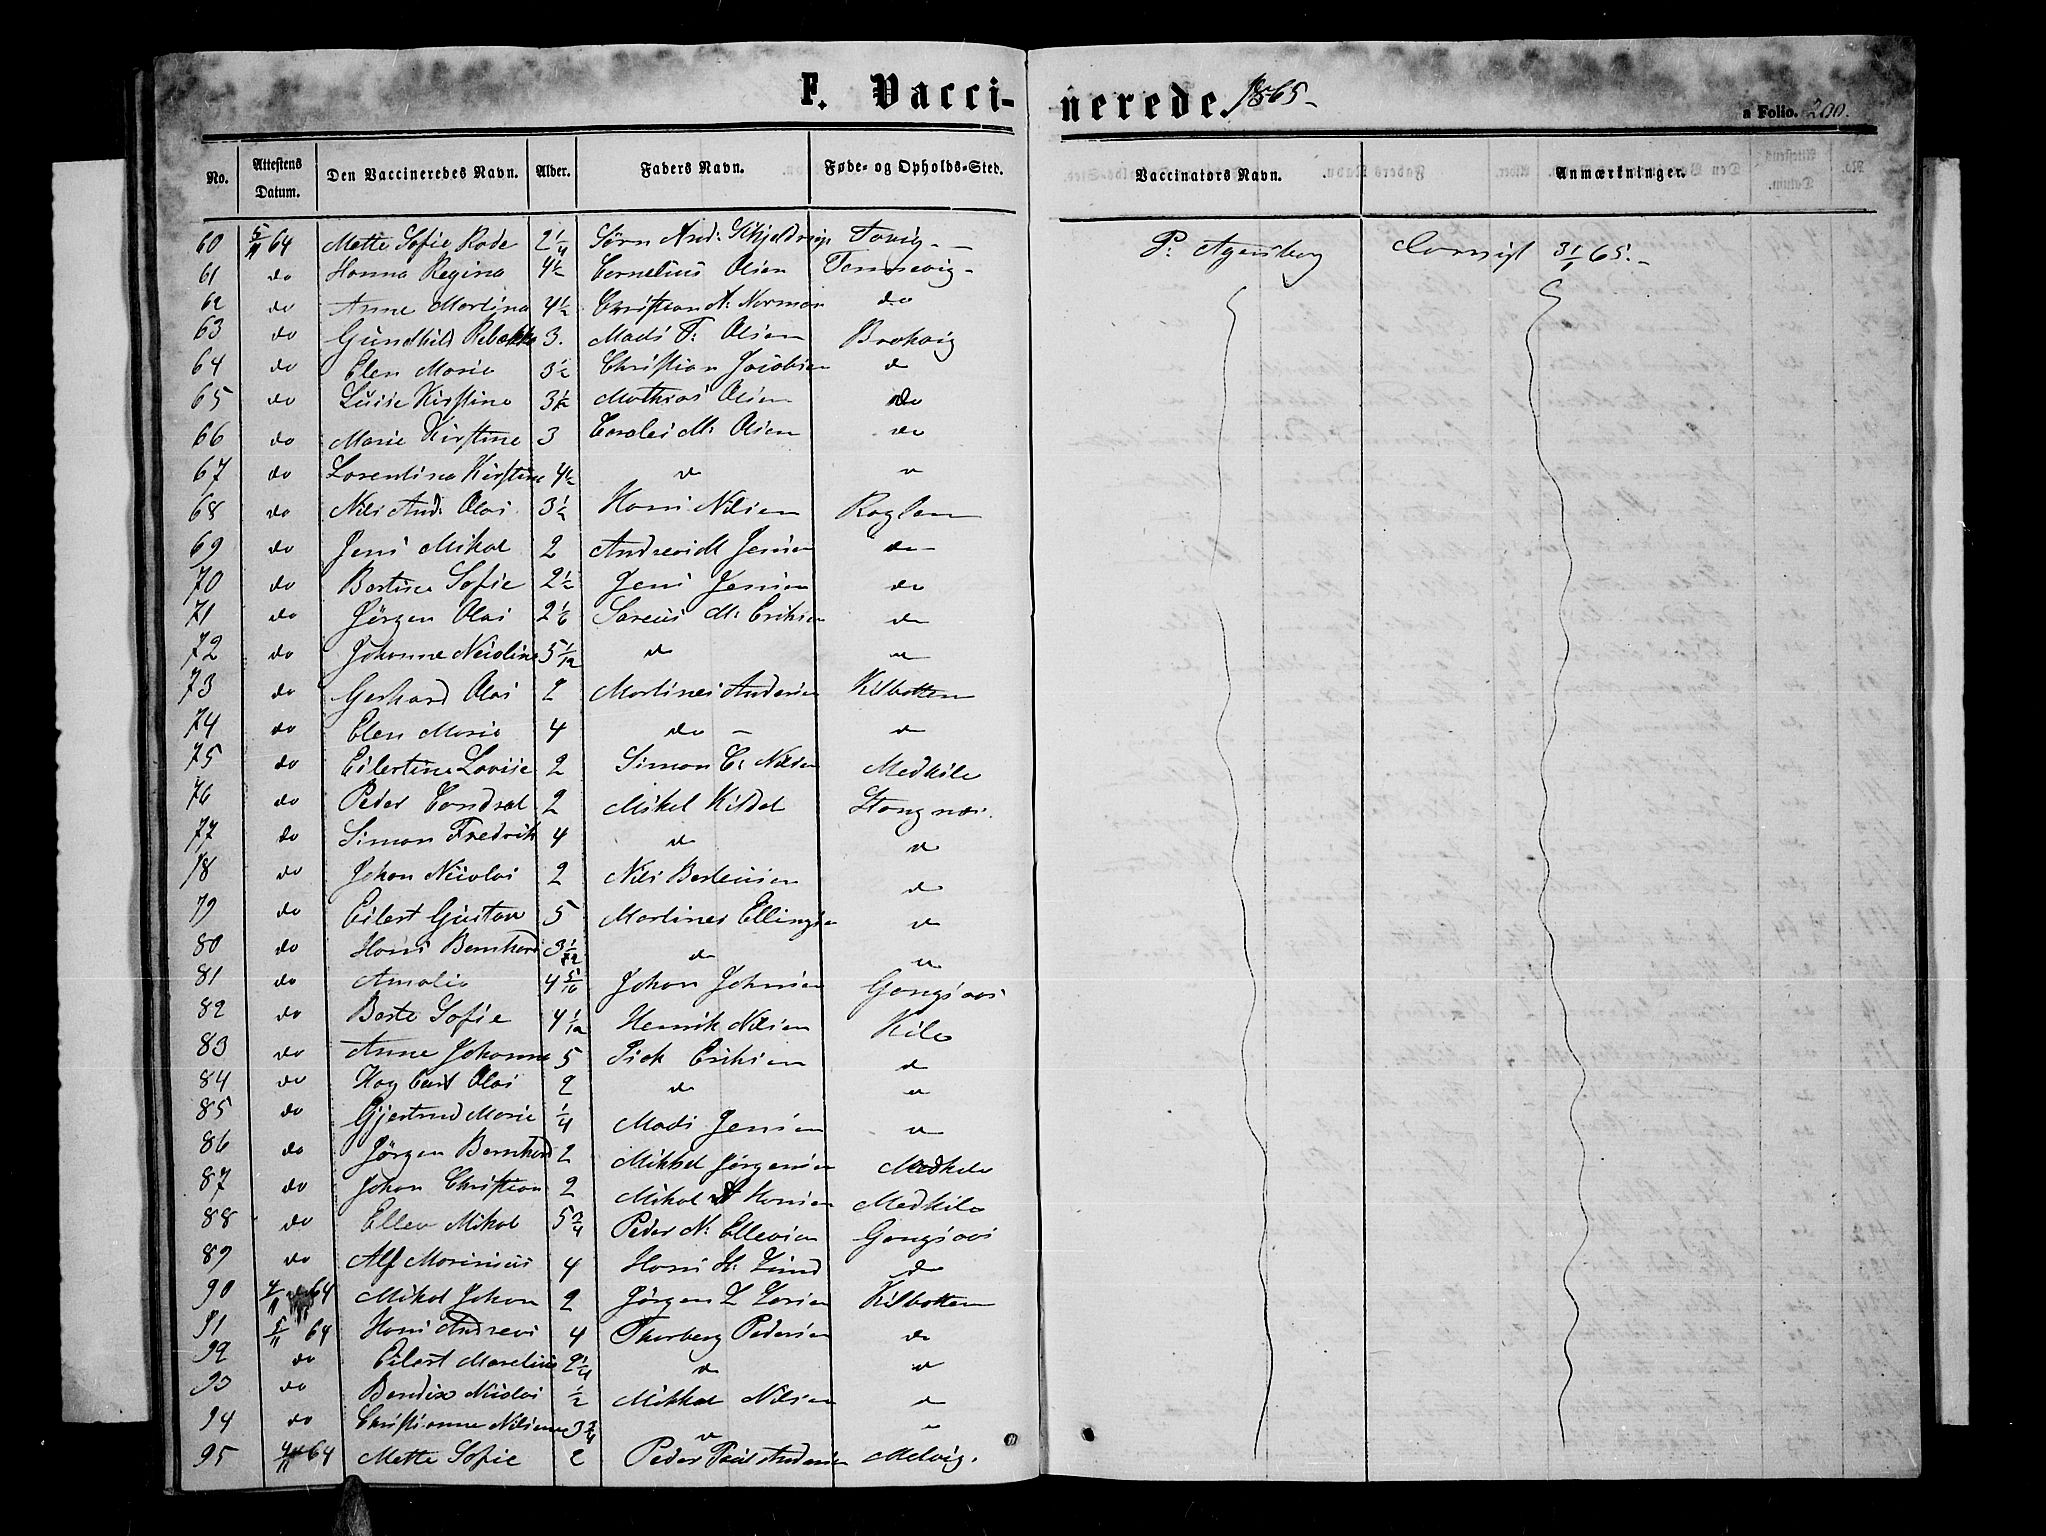 F. Vacci-
nerede. 1865.-
a Folio. 200.
No. Attestens Datum. Den Vaccineredes Navn. Alder. Faders Navn. Føde- og Opholds-Sted. Vaccinators Navn. Anmærkninger.
60 5/11 64 Mette Sofie Rode 2 1/4 Sörn And: Tovig. -
61 do Hanna Regina 4½ Cornelius Olsen Tennevig -
62 do Anne Martina 4½ Christian A: Norman do
63 do Gundhild Rebekka 3. Mads T: Olsen Brokvig
64 do Elen Marie 3½ Christian Jacobsen d
65 do Luise Kirstine 3½ Mathias Olsen do
66 do Marie Kirstine 3 Carolus M: Olsen do
67 do Lorentina Kirstine 4½ d "
68 do Nils And: Olai 3½ Hans Nilsen Roglen
69 do Jens Mikal 2 Andreas M Jensen do
70 do Bertine Sofie 2½ Jens Jensen do
71 do Jörgen Olai 2 1/6 Sareus M: Eriksen do
72 do Johanne Nicoline 5 1/12 d "
73 do Gerhard Olai 2 Martines Andersen Kilbotten
74 do Elen Marie 4 do - d
75 do Eilertine Lovise 2 Simon C: Nilsen Medkile
76 do Peder Condrad 2 Mikel Kildal Stangnæs.
77 do Simon Fredrik 4 d d
78 do Johan Nicolai 2 Nils Berteusen d
79 do Eilert Gustav 5 Martines Ellingsen d
80 do Hans Bernhard 3 1/12 d "
81 do Amalie 4 5/10 Johan Johnsen Gangsaas
82 do Berte Sofie 4 1/12 Henrik Nilsen Kile
83 do Anne Johanna 5 Eriksen d
84 do Hagbart Olai 2 d "
85 do Gjertrud Marie 1/4 Mads Jensen "
86 do Jörgen Bernhard 2 Mikkel Jörgensen Medkile
87 do Johan Christian 2 Mikal Hansen Medkile
88 do Ellev Mikal 5 3/4 Peder N: Ellevsen Gangsaas
89 do Alf Marinius 4 Hans H: Lund do
90 4/11 64 Mikal Johan 2 Jörgen L Larsen Kilbotten
91 5/11 64 Hans Andreas 4 Thorberg Pedersen do
92 do Eilert Marelius 2 1/4 d "
93 do Bendix Nicolai ½ Mikkal Nilsen d
94 do Christianne Nilsine 3 3/4 " "
95 4/11 64 Mette Sofie 2 Peder Paul Andersen Melvig.
P: Agersborg 31/1 65.-